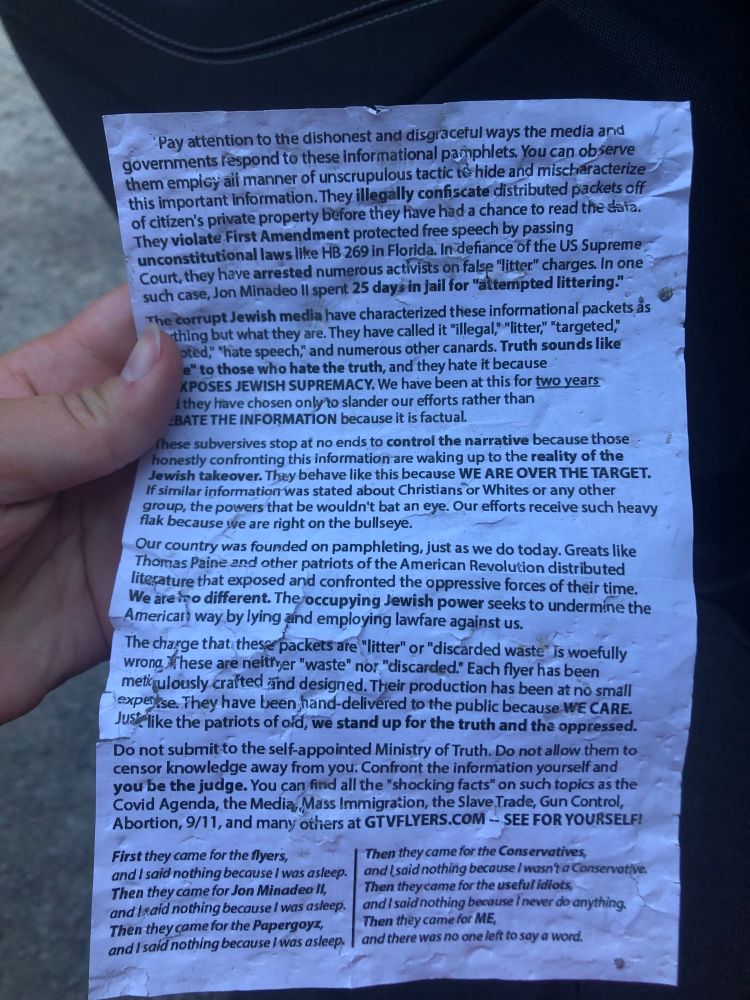 Pay attention to the dishonest and disgraceful ways the media and
governments respond to these informational pamphlets. You can observe
them employ all manner of unscrupulous tactic to hide and mischaracterize
this important information. They illegally confiscate distributed packets off
of citizen's private property before they have had a chance to read the data.
They violate First Amendment protected free speech by passing
unconstitutional laws like HB 269 in Florida. In defiance of the US Supreme
Court, they have arrested numerous activists on false "litter" charges. In one
such case, Jon Minadeo II spent 25 days in jail for "attempted littering."
The corrupt Jewish media have characterized these informational packets as
thing but what they are. They have called it "illegal," "litter," "targeted,"
"hate speech," and numerous other canards. Truth sounds like
to those who hate the truth, and they hate it because
XPOSES JEWISH SUPREMACY. We have been at this for two years
they have chosen only to slander our efforts rather than
EBATE THE INFORMATION because it is factual.
These subversives stop at no ends to control the narrative because those
honestly confronting this information are waking up to the reality of the
Jewish takeover. They behave like this because WE ARE OVER THE TARGET.
If similar information was stated about Christians or Whites or any other
group, the powers that be wouldn't bat an eye. Our efforts receive such heavy
flak because we are right on the bullseye.
Our country was founded on pamphleting, just as we do today. Greats like
Thomas Paine and other patriots of the American Revolution distributed
literature that exposed and confronted the oppressive forces of their time.
We are no different. The occupying Jewish power seeks to undermine the
American way by lying and employing lawfare against us.
The charge that these packets are "litter" or "discarded waste" is woefully
wrong. These are neither "waste" nor "discarded." Each flyer has been
meticulously crafted and designed. Their production has been at no small
expense. They have been hand-delivered to the public because WE CARE.
Just like the patriots of old, we stand up for the truth and the oppressed.
Do not submit to the self-appointed Ministry of Truth. Do not allow them to
censor knowledge away from you. Confront the information yourself and
you be the judge. You can find all the "shocking facts" on such topics as the
Covid Agenda, the Media, Mass Immigration, the Slave Trade, Gun Control,
Abortion, 9/11, and many others at GTVFLYERS.COM -- SEE FOR YOURSELF!
First they came for the flyers,
and I said nothing because I was asleep.
Then they came for Jon Minadeo II,
and I said nothing because I was asleep.
Then they came for the Papergoyz,
and I said nothing because I was asleep.
Then they came for the Conservatives,
and I said nothing because I wasn't a Conservative.
Then they came for the useful idiots,
and I said nothing because I never do anything.
Then they came for ME,
and there was no one left to say a word.